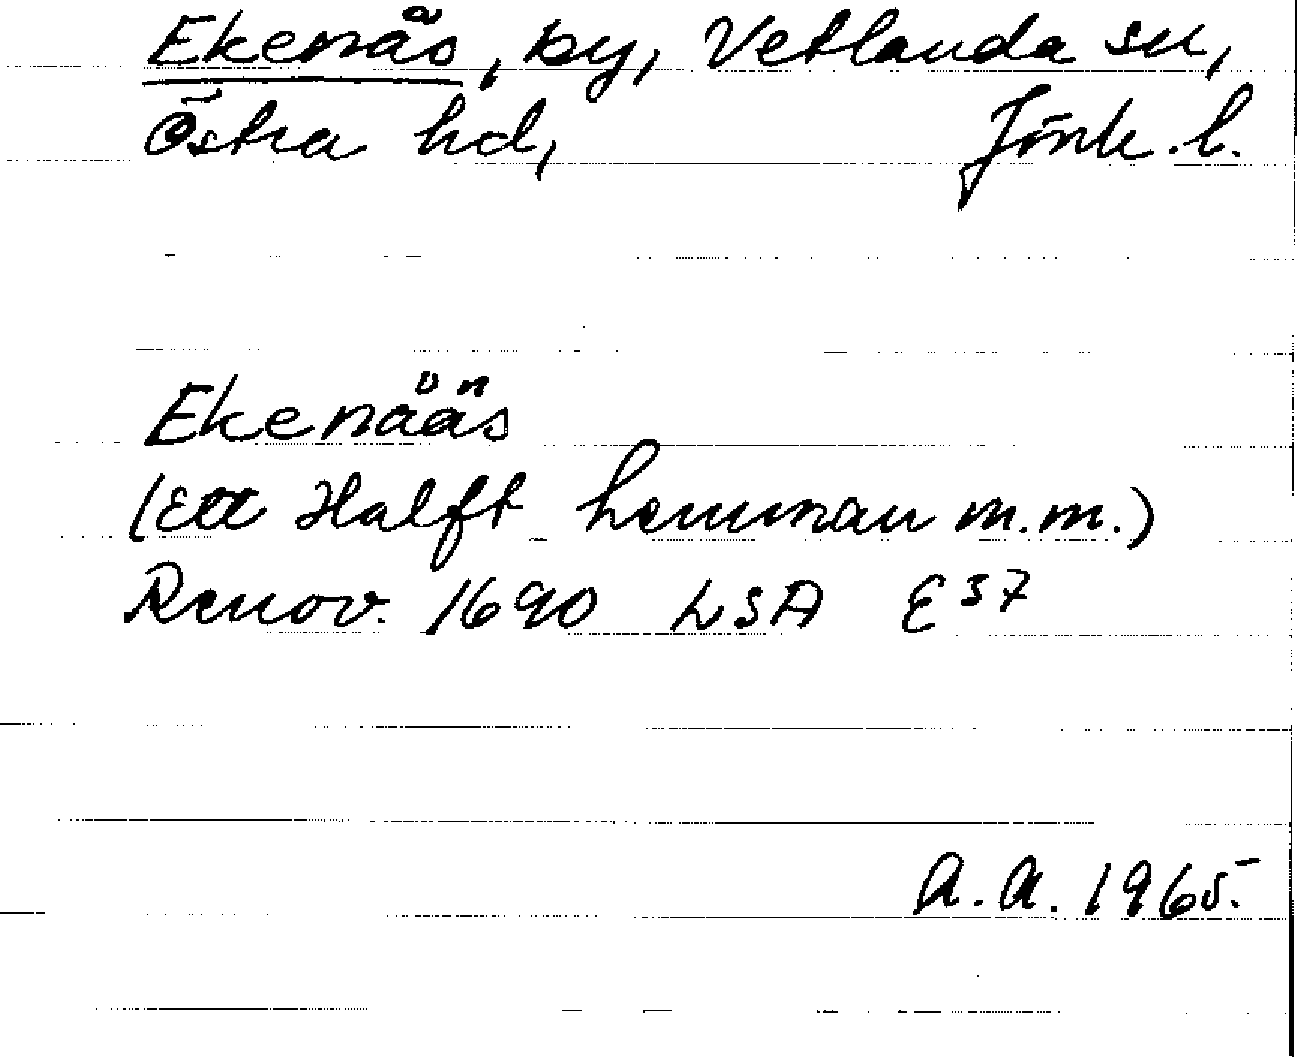 Ekenäs, by, Vetlanda sn,
Östra hd, Jönk. l.
Ekenääs
(Ett Halft hemman m.m.)
Renov. 1690 LSA E 37
A.A. 1965.